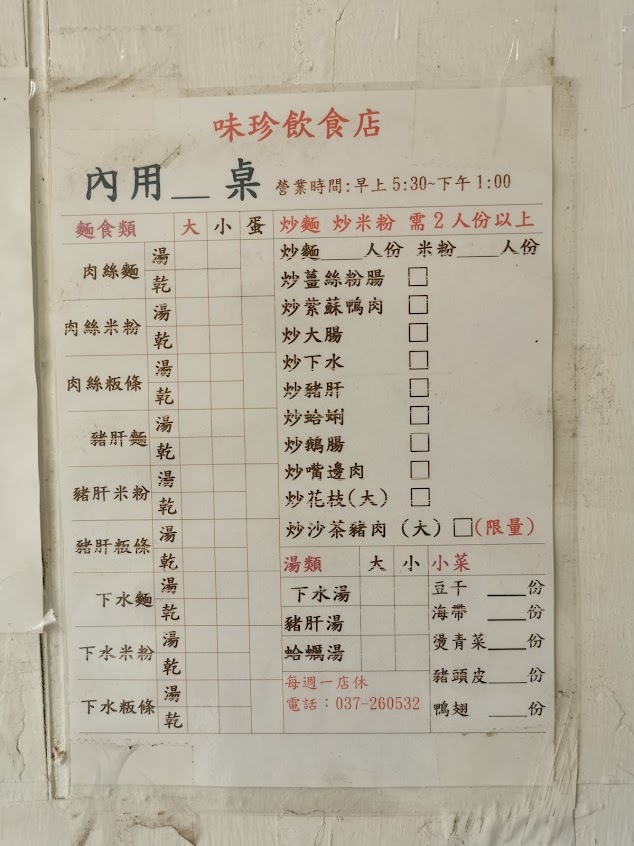 味珍飲食店
內用__桌 營業時間:早上5:30~下午1:00
麵食類 大 小 蛋
肉絲麵 湯
乾
肉絲米粉 湯
乾
肉絲粄條 湯
乾
豬肝麵 湯
乾
豬肝米粉 湯
乾
豬肝粄條 湯
乾
下水麵 湯
乾
下水米粉 湯
乾
下水粄條 湯
乾
炒麵 炒米粉 需2人份以上
炒麵____人份 米粉____人份
炒薑絲粉腸 □
炒紫蘇鴨肉 □
炒大腸 □
炒下水 □
炒豬肝 □
炒蛤蜊 □
炒鵝腸 □
炒嘴邊肉 □
炒花枝(大) □
炒沙茶豬肉 (大) □(限量)
湯類 大 小
下水湯
豬肝湯
蛤蠣湯
每週一店休
電話:037-260532
小菜
豆干 ____份
海帶 ____份
燙青菜____份
豬頭皮____份
鴨翅 ____份